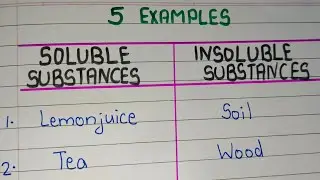 5 EXAMPLES
SOLUBLE SUBSTANCES
INSOLUBLE SUBSTANCES
1. Lemonjuice Soil
2. Tea Wood